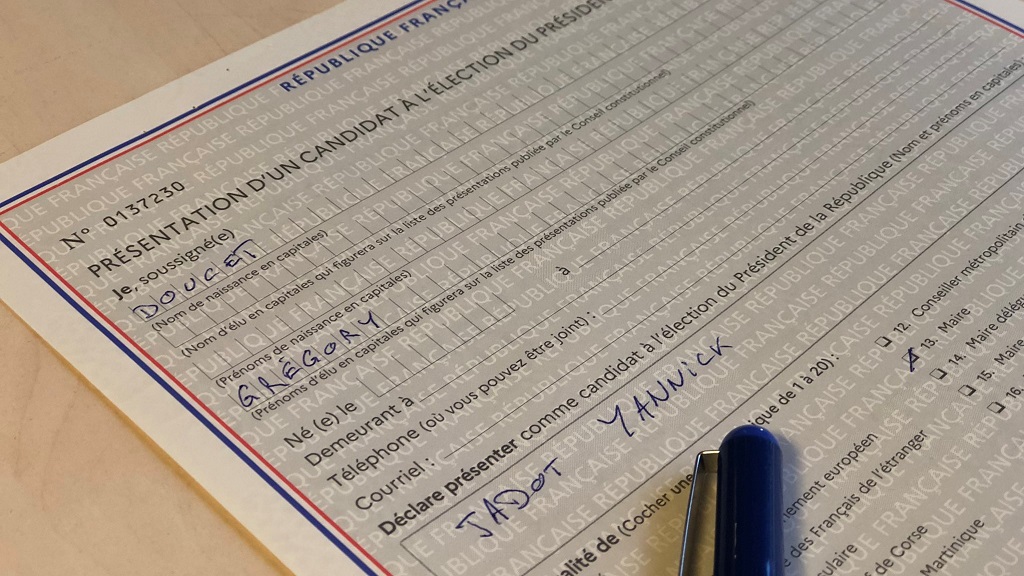 RÉPUBLIQUE FRANÇA
N° 0137230
PRÉSENTATION D'UN CANDIDAT À L'ÉLECTION DU PRÉSIDEN
Je, soussigné(e)
DOUCET
(Nom de naissance en capitales)
(Nom d'élu en capitales qui figurera sur la liste des présentations publiée par le Conseil constitutionnel)
(Prénoms de naissance en capitales)
GRÉGORY
(Prénoms d'élu en capitales qui figurera sur la liste des présentations publiée par le Conseil constitutionnel)
Né(e) le à
Demeurant à
Téléphone (où vous pouvez être joint) :
Courriel :
Déclare présenter comme candidat à l'élection du Président de la République (Nom et prénoms en capitales)
JADOT YANNICK
alité de (Cocher une que de 1 à 20) :
12. Conseiller métropolitain
13. Maire
14. Maire délég
15. Maire
16. Mai
lement européen
des Français de l'étranger
ulaire
de Corse
Martinique